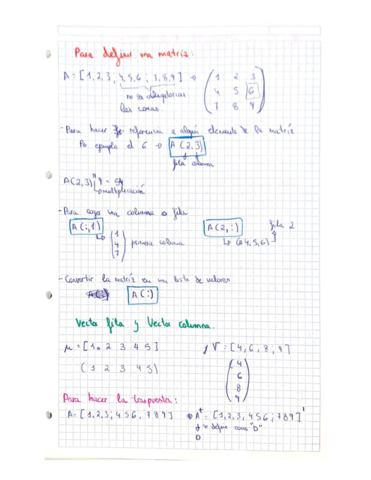 Para definir una matriz:
A = [1,2,3, 4,5,6 ; 7,8,9] → (1 2 3
4 5 6
7 8 9)
no son obligatorias
las comas.
- Para hacer referencia a algún elemento de la matriz
Po ejemplo el 6 → A (2,3)
fila columna
A(2,3) * 9 = 54
multiplicación
- Para coger una columna o fila
A(:,1) A(2,:) fila 2
↳ (1
4
7) primera columna ↳ (4,5,6)
- Convertir la matriz en una lista de valores
A(:)
Vector fila y Vector columna.
μ = [1 2 3 4 5] y V = [4,6,8,9]
(1 2 3 4 5) (4
6
8
9)
Para hacer la traspuesta:
A = [1,2,3; 4 5 6; 7 8 9] → Aᵗ = [1,2,3; 4 5 6; 7 8 9]'
se define como "D"
D